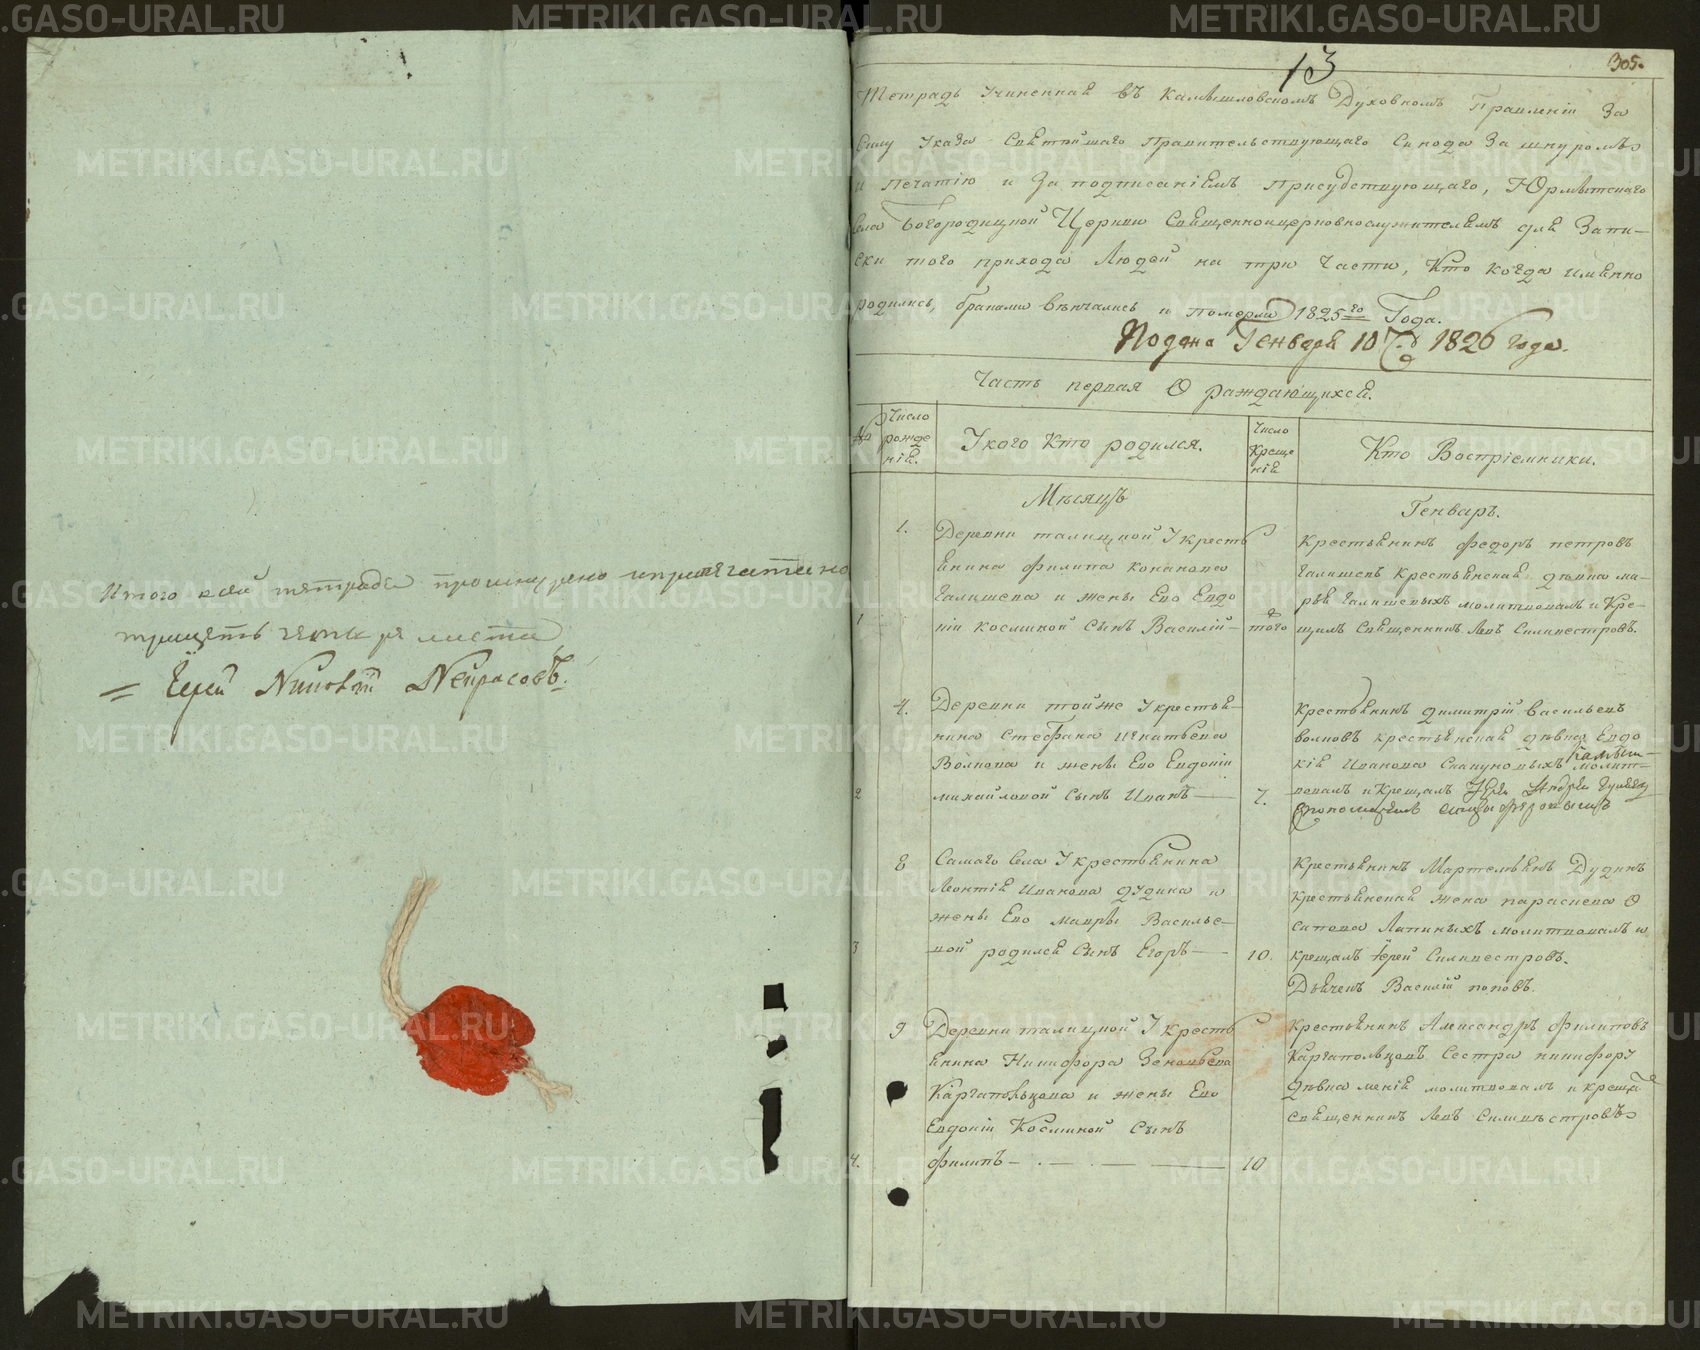 Итого всей тетради прошнуровано и припечатано
тридцать четыре листа
Іерей Никонъ Некрасовъ.
13
305.
Тетрадь Учиненная въ Камышловскомъ Духовномъ Правленіи За
Силу Указа Святѣйшаго Правительствующаго Синода За шнуромъ
и печатію и За подписаніемъ присудствующаго, Юрмытскаго
Села Богородицкой Церкви Священноцерковнослужителямъ для Запи-
ски того прихода Людей на три Части, Кто когда именно
родились, браками вѣнчались и померли 1825го Года.
Подана Генваря 10 1826 года.
Часть первая О раждающихся.
№
Число рожденія.
У кого Кто родился.
Число Крещенія
Кто Воспріемники.
Мѣсяцъ
Генварь.
1.
Деревни талицкой У кресть
янина Филипа Конакова
Галишева и жены Его Евдо
1
кіи косминой Сынъ Василій-
того
крестьянинъ Федоръ петровъ
Галишевъ крестьянская дѣвка ма-
рья Галишевыхъ молитвовалъ и Кре-
щилъ Священникъ Левъ Силивестровъ.
4.
Деревни тойже У крестья-
нина Стефана Игнатьева
Волкова и жены Его Евдокіи
2
михайловой Сынъ Иванъ
7.
крестьянинъ димитрій васильевъ
волковъ крестьянская дѣвка Евдо
кія Иванова молит-
вовалъ и Крещалъ Іерей Андрей
8
Самаго Села У крестьянина
Леонтія Иванова дудина и
жены Его мавры Василье-
3
вой родился Сынъ Егоръ
10.
крестьянинъ Мартемьянъ Дудинъ
крестьянская жена параскева О
сипова Лапиныхъ молитвовалъ и
крещалъ Іерей Силивестровъ.
Дьячекъ Василій поповъ.
9
Деревни талицкой У кресть
янина Никифора Зиновьева
Каргапольцова и жены Его
Евдокіи Косминой Сынъ
4.
Филипъ
10
крестьянинъ Александръ Филиповъ
Каргапольцовъ Сестра никифору
дѣвка молитвовалъ и креща
Священникъ Левъ Силивестровъ
METRIKI.GASO-URAL.RU